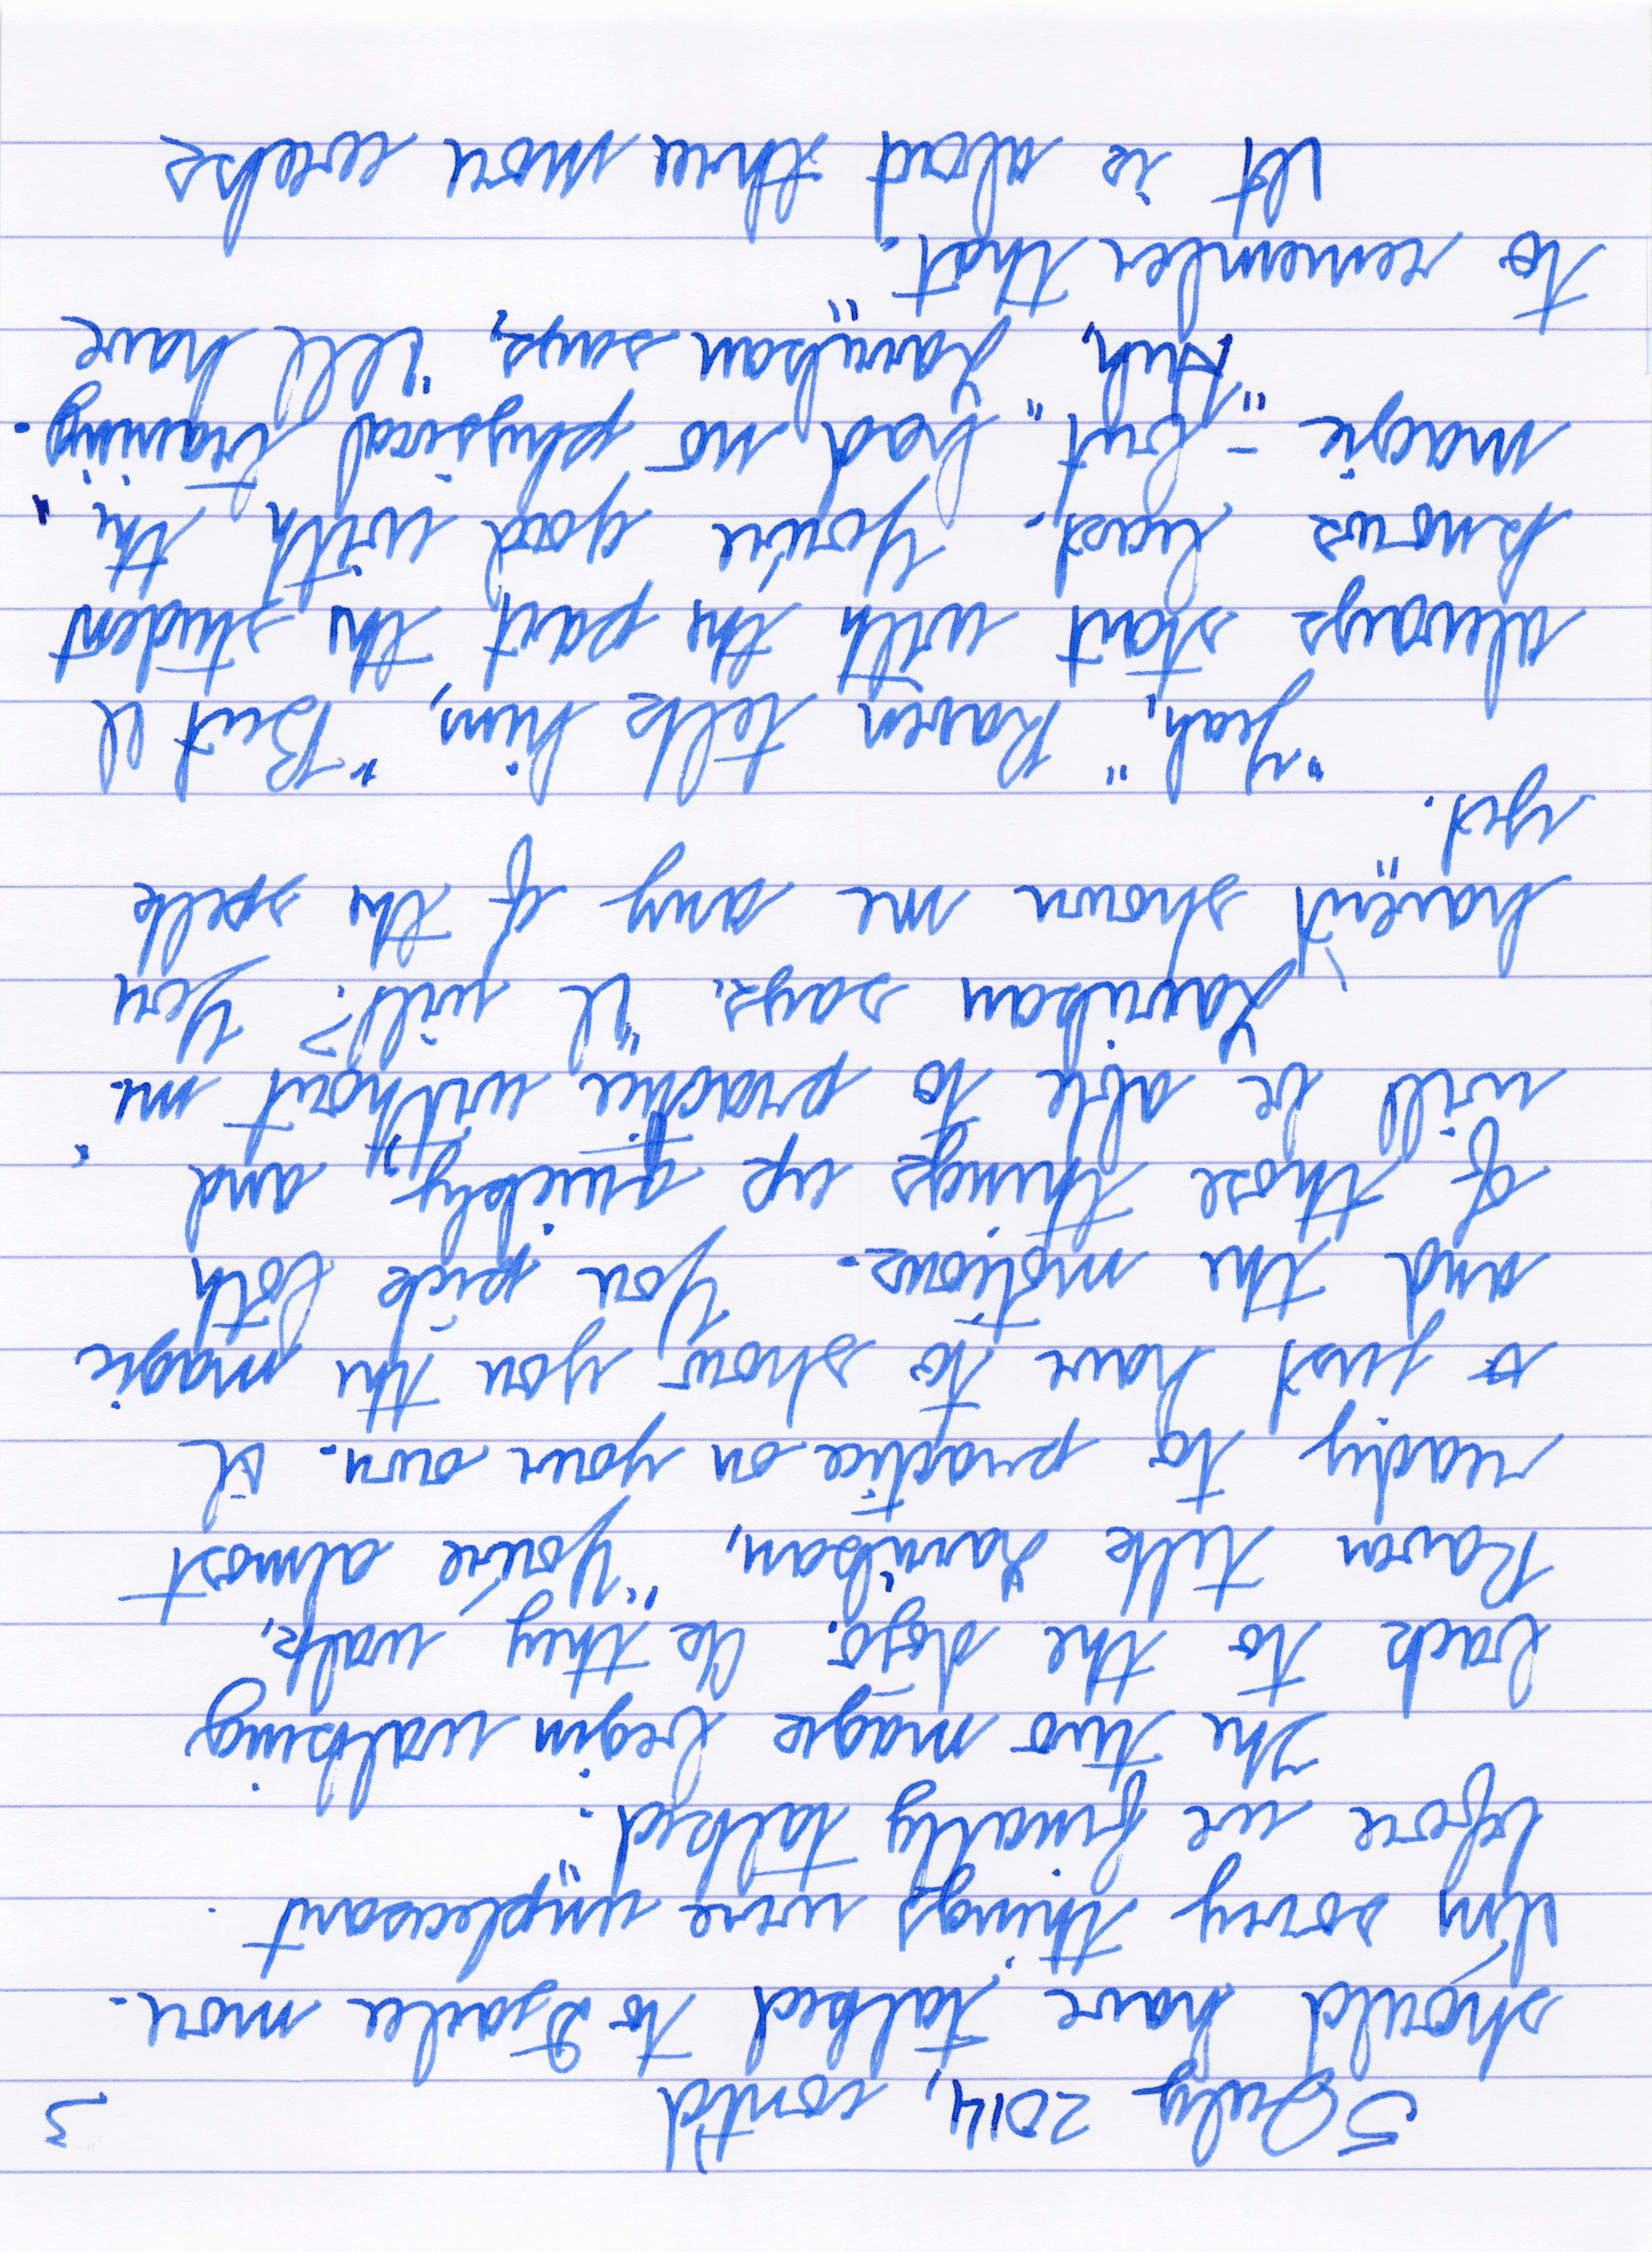 5 July 2014, cont'd 3
should have talked to Izaila more.
I'm sorry things were unpleasant
before we finally talked."
The two mage begin walking
back to the dojo. As they walk,
Raven tells Larriksan, "You're almost
ready to practice on your own. I
just have to show you the magic
and the motions. You pick both
of those things up quickly, and
will be able to practice without me."
Larriksan says, "I will? You
haven't shown me any of the spells
yet."
"Yeah," Raven tells him, "But I
always start with the part the student
knows least. You're good with the
magic – but had no physical training."
"Huh," Larriksan says, "I'll have
to remember that."
It is about three more weeks